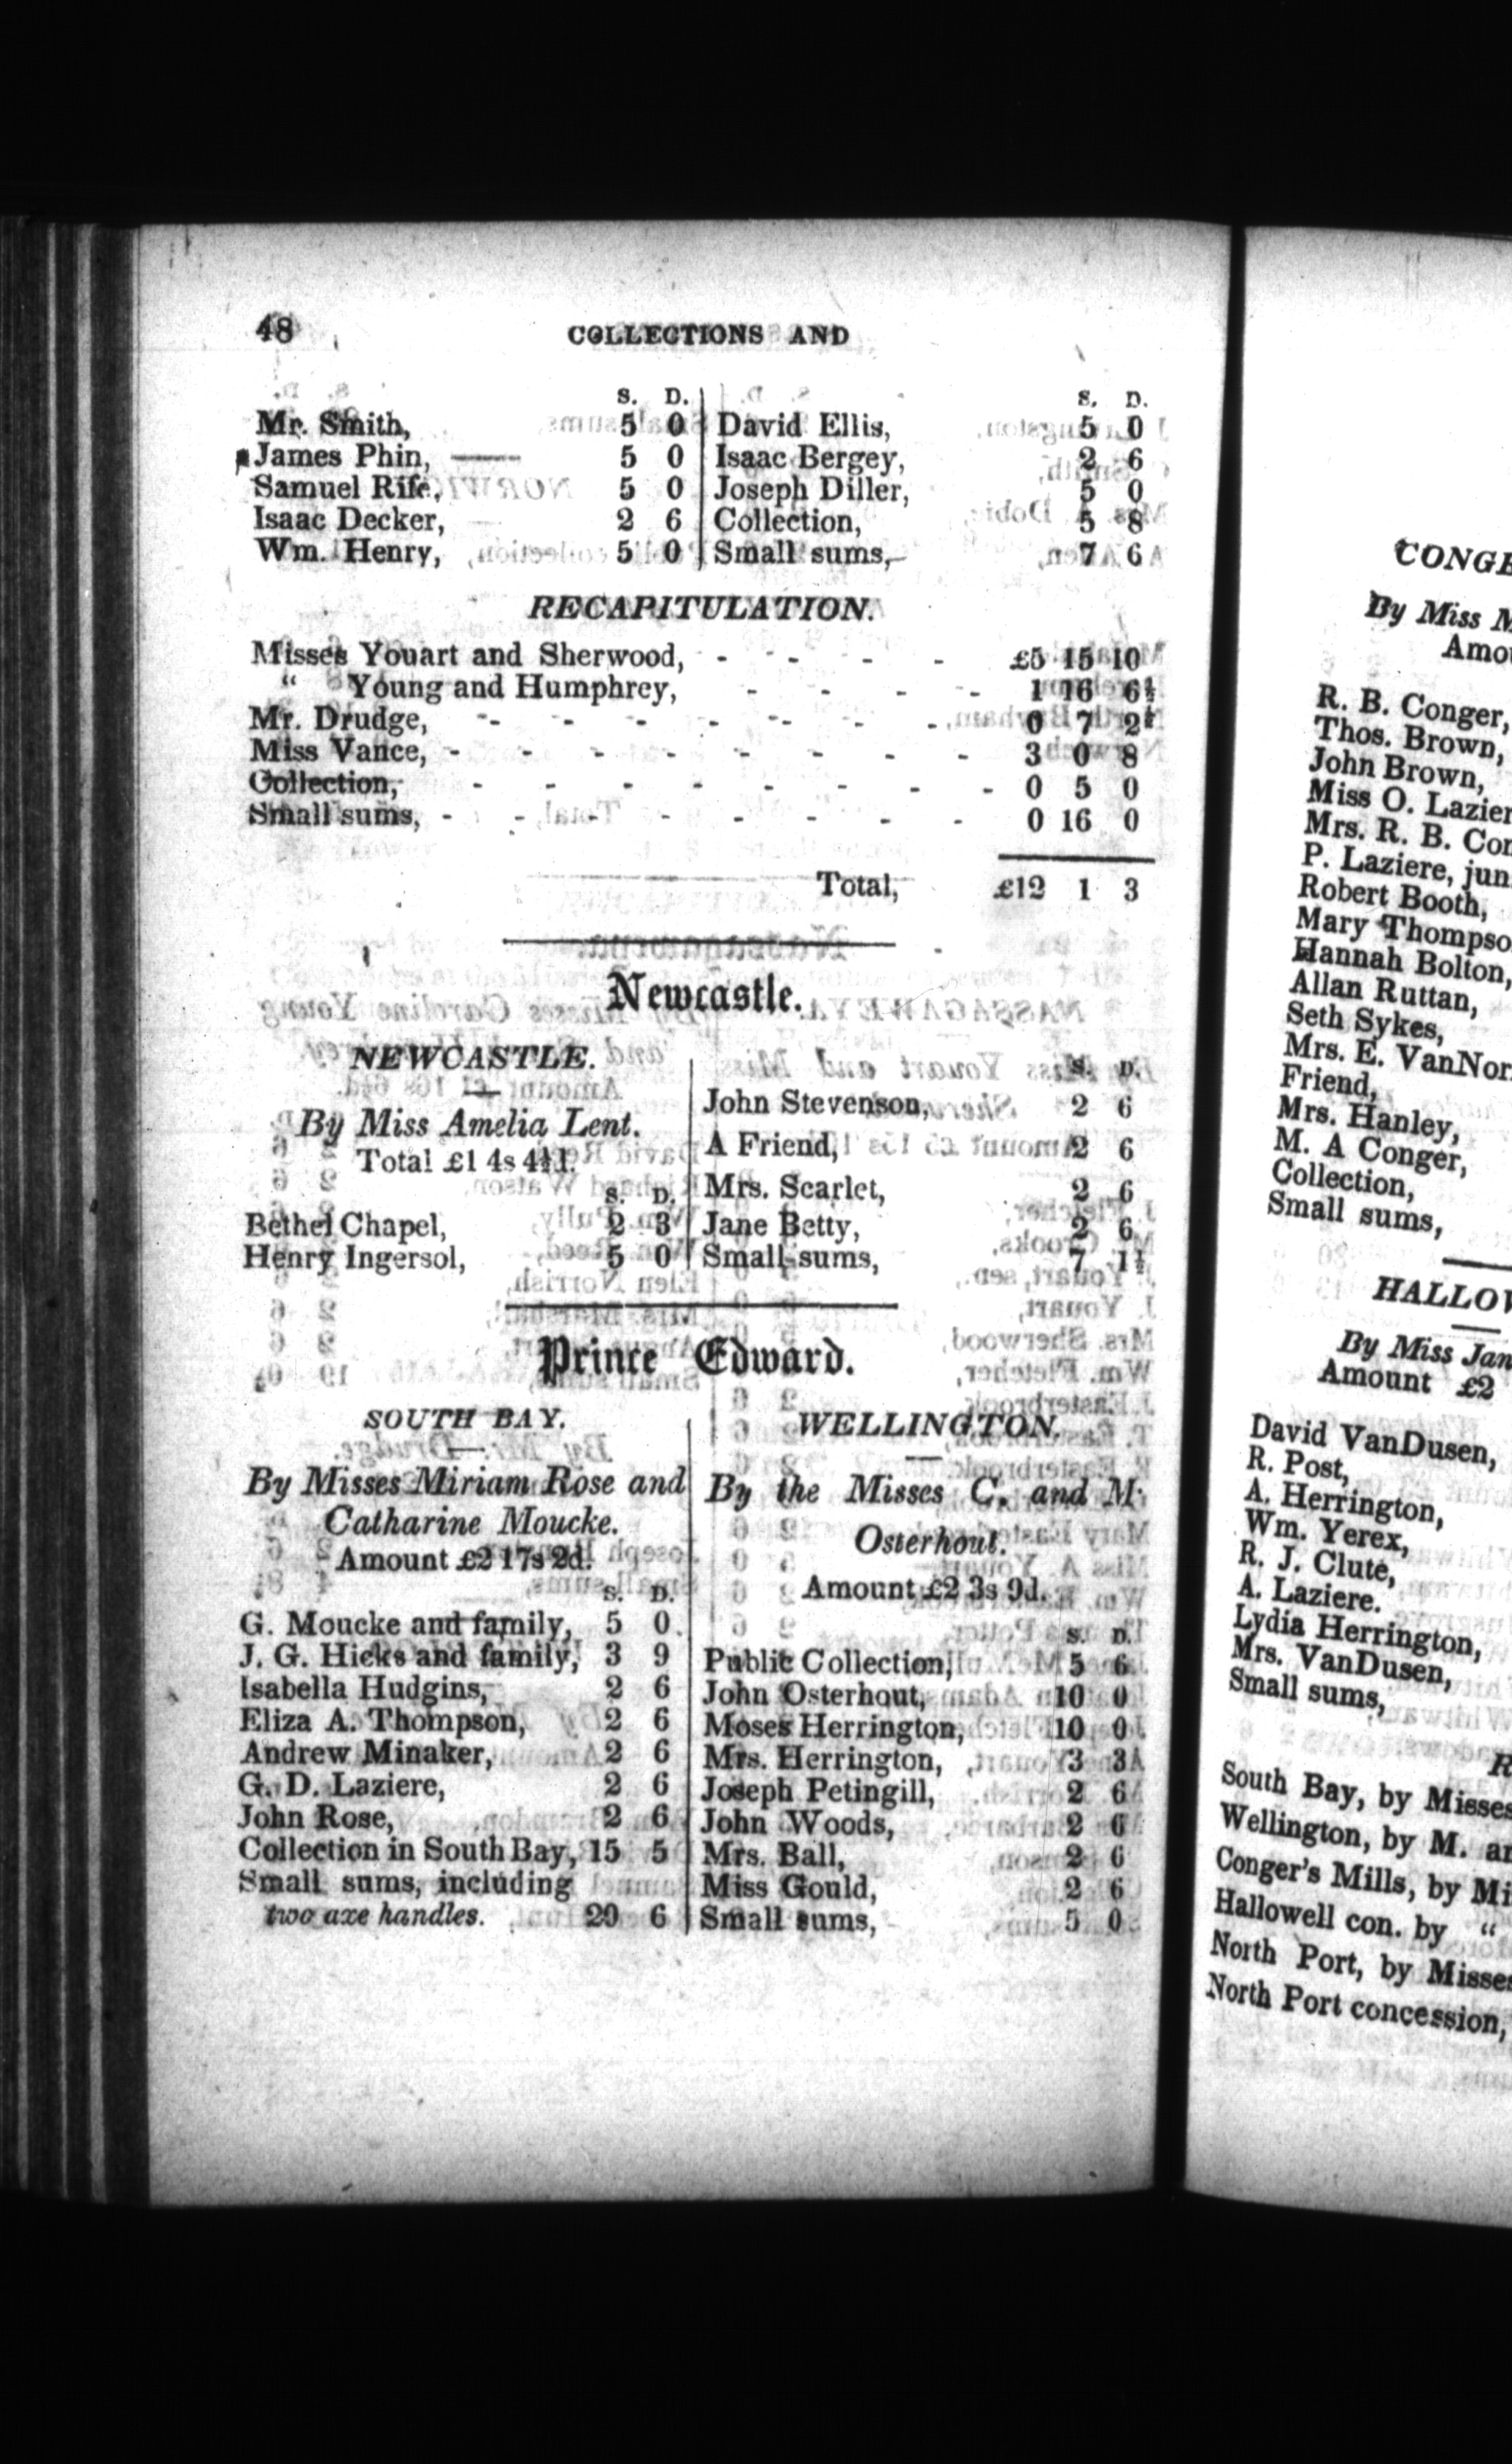 48
COLLECTIONS AND
S. D.
Mr. Smith, 5 0
James Phin, 5 0
Samuel Rife, 5 0
Isaac Decker, 2 6
Wm. Henry, 5 0
S. D.
David Ellis, 5 0
Isaac Bergey, 2 6
Joseph Diller, 5 0
Collection, 5 8
Small sums, 7 6
RECAPITULATION.
Misses Youart and Sherwood, - - - - £5 15 10
“ Young and Humphrey, - - - - 1 16 6½
Mr. Drudge, - - - - - - - 0 7 2½
Miss Vance, - - - - - - - - 3 0 8
Collection, - - - - - - - - 0 5 0
Small sums, - - - - - - - - 0 16 0
Total, £12 1 3
Newcastle.
NEWCASTLE.
By Miss Amelia Lent.
Total £1 4s 4½d.
S. D.
Bethel Chapel, 2 3
Henry Ingersol, 5 0
S. D.
John Stevenson, 2 6
A Friend, 2 6
Mrs. Scarlet, 2 6
Jane Betty, 2 6
Small sums, 7 1½
Prince Edward.
SOUTH BAY.
By Misses Miriam Rose and
Catharine Moucke.
Amount £2 17s 2d.
S. D.
G. Moucke and family, 5 0
J. G. Hicks and family, 3 9
Isabella Hudgins, 2 6
Eliza A. Thompson, 2 6
Andrew Minaker, 2 6
G. D. Laziere, 2 6
John Rose, 2 6
Collection in South Bay, 15 5
Small sums, including
two axe handles. 20 6
WELLINGTON.
By the Misses C. and M.
Osterhout.
Amount £2 3s 9d.
S. D.
Public Collection, 5 6
John Osterhout, 10 0
Moses Herrington, 10 0
Mrs. Herrington, 3 3
Joseph Petingill, 2 6
John Woods, 2 6
Mrs. Ball, 2 6
Miss Gould, 2 6
Small sums, 5 0
CONGE
By Miss M
Amou
R. B. Conger,
Thos. Brown,
John Brown,
Miss O. Lazier
Mrs. R. B. Con
P. Laziere, jun
Robert Booth,
Mary Thompso
Hannah Bolton,
Allan Ruttan,
Seth Sykes,
Mrs. E. VanNor
Friend,
Mrs. Hanley,
M. A Conger,
Collection,
Small sums,
HALLOW
By Miss Jan
Amount £2
David VanDusen,
R. Post,
A. Herrington,
Wm. Yerex,
R. J. Clute,
A. Laziere.
Lydia Herrington,
Mrs. VanDusen,
Small sums,
R
South Bay, by Misses
Wellington, by M. an
Conger's Mills, by Mi
Hallowell con. by “
North Port, by Misses
North Port concession,